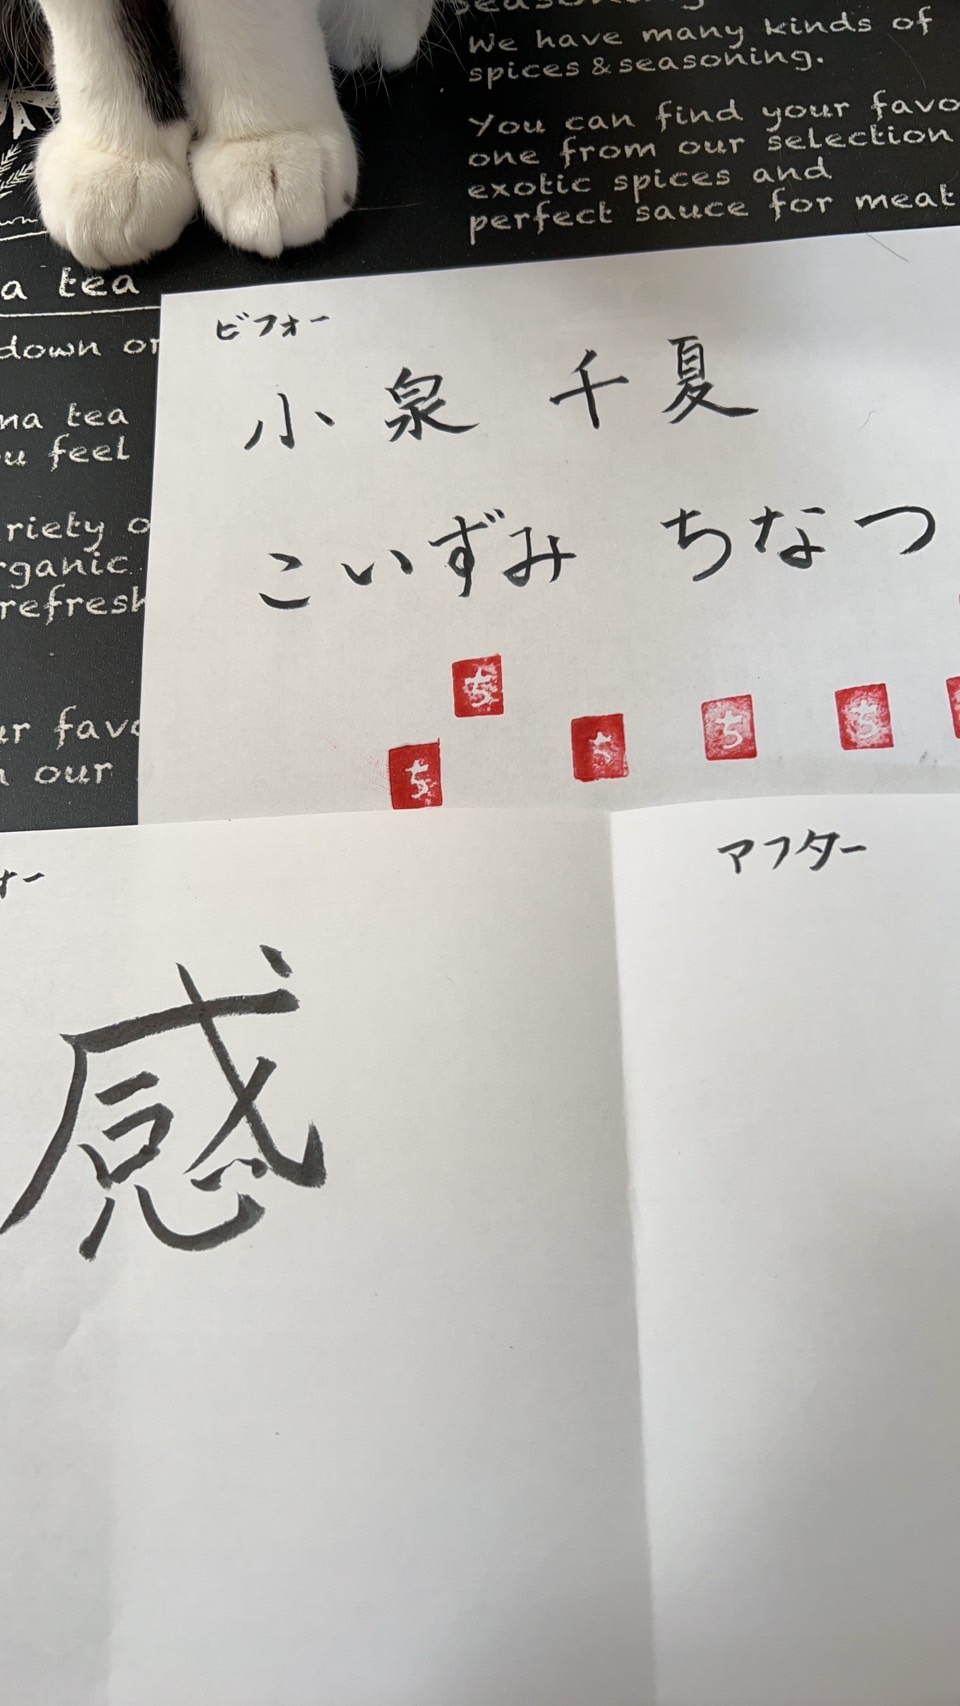 We have many kinds of
spices & seasoning.
You can find your favo
one from our selection
exotic spices and
perfect sauce for meat
a tea
down or
na tea
u feel
riety o
rganic
refresh
ur favo
our
ビフォー
小泉 千夏
こいずみ ちなつ
ち
ち
ち
ち
ち
ォー
アフター
感